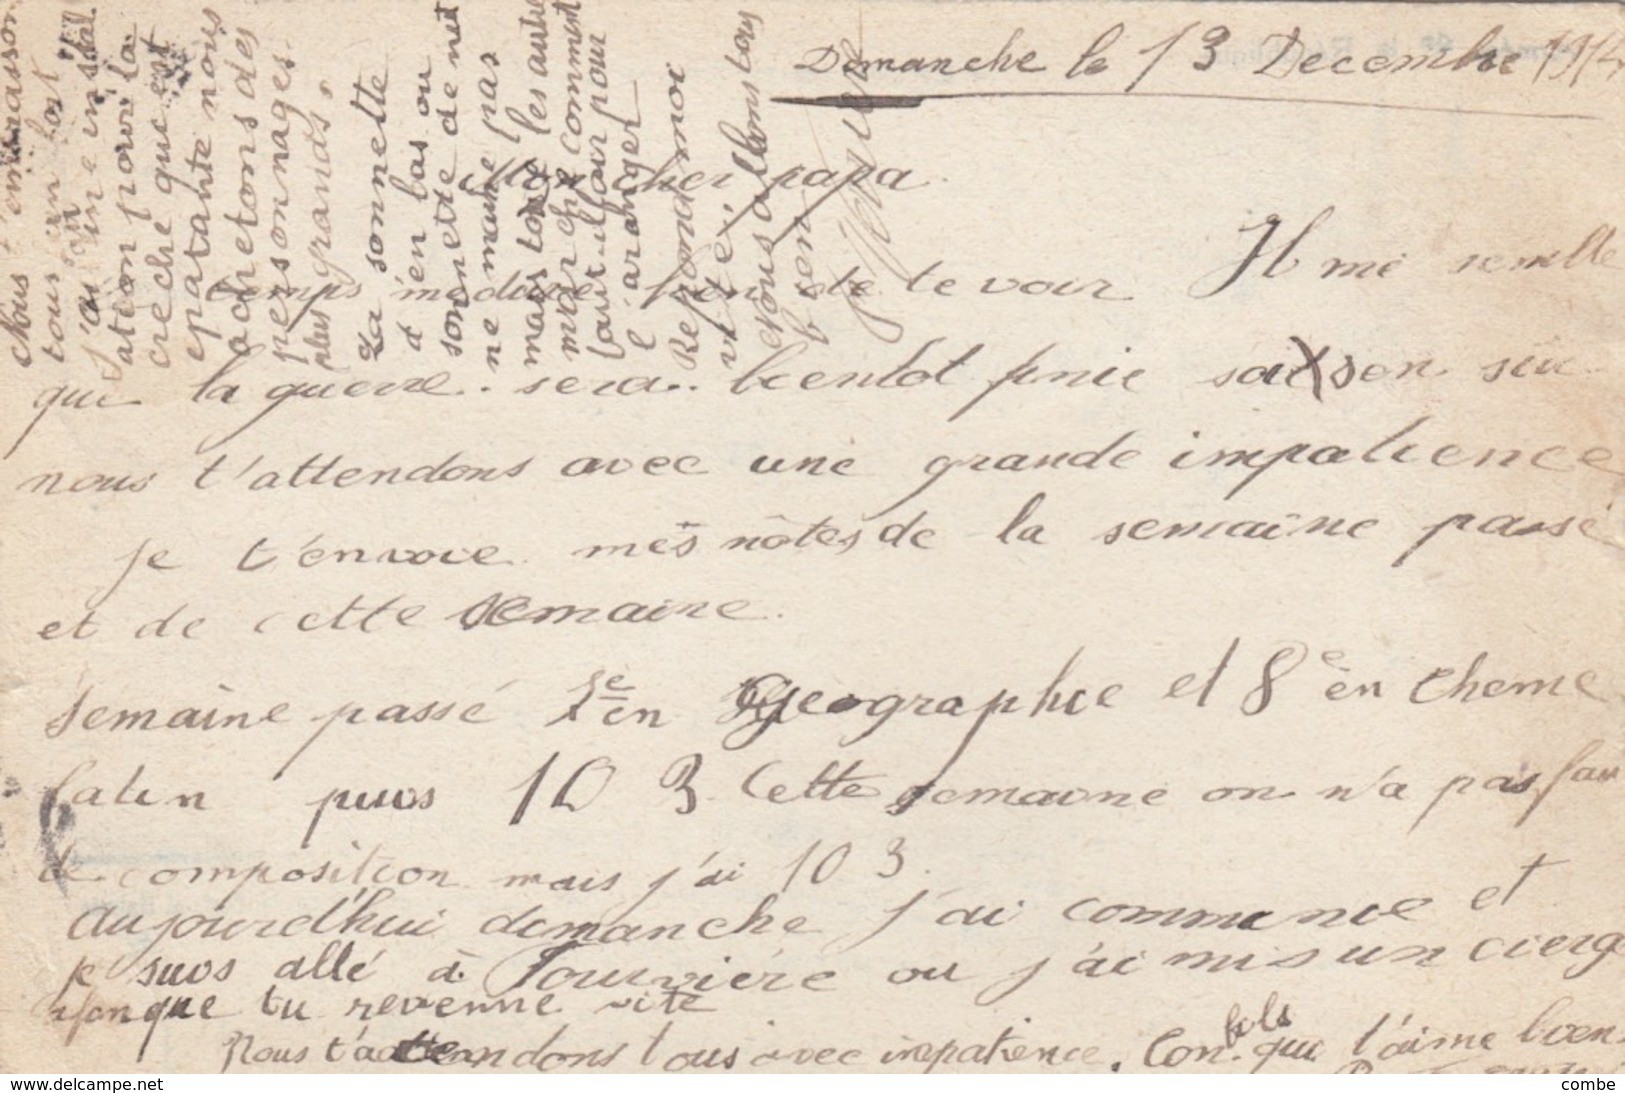 Dimanche le 13 Decembre 1914
Mon cher papa
Il me semble
temps me dure bien de te voir
que la guerre sera bientot finie
nous t'attendons avec une grande impatience
je t'envoie mes nôtes de la semaîne passé
et de cette semaine.
semaîne passé 1e en geographie et 8e en theme
latin puis 10 3 Cette semaine on n'a pas fait
de composition mais j'ai 10 3.
aujourd'hui dimanche j'ai commence et
je suis allé à Fourvière ou j'ai mis un cierge
afonque tu revenne vite
Nous t'attendons tous avec impatience. Ton fils qui t'aime bien
Nous t'embrasson
tous bien fort
j'ai une instal
ation pour la
crèche que est
epatante nous
achetons des
personnages
plus grands.
La sonnette
d'en bas ou
sonnette de nuit
ne marche pas
mais toute les autre
marche comment
faut-il fair pour
l'aranger
Repond moi
vite,
nous allons tous
bien